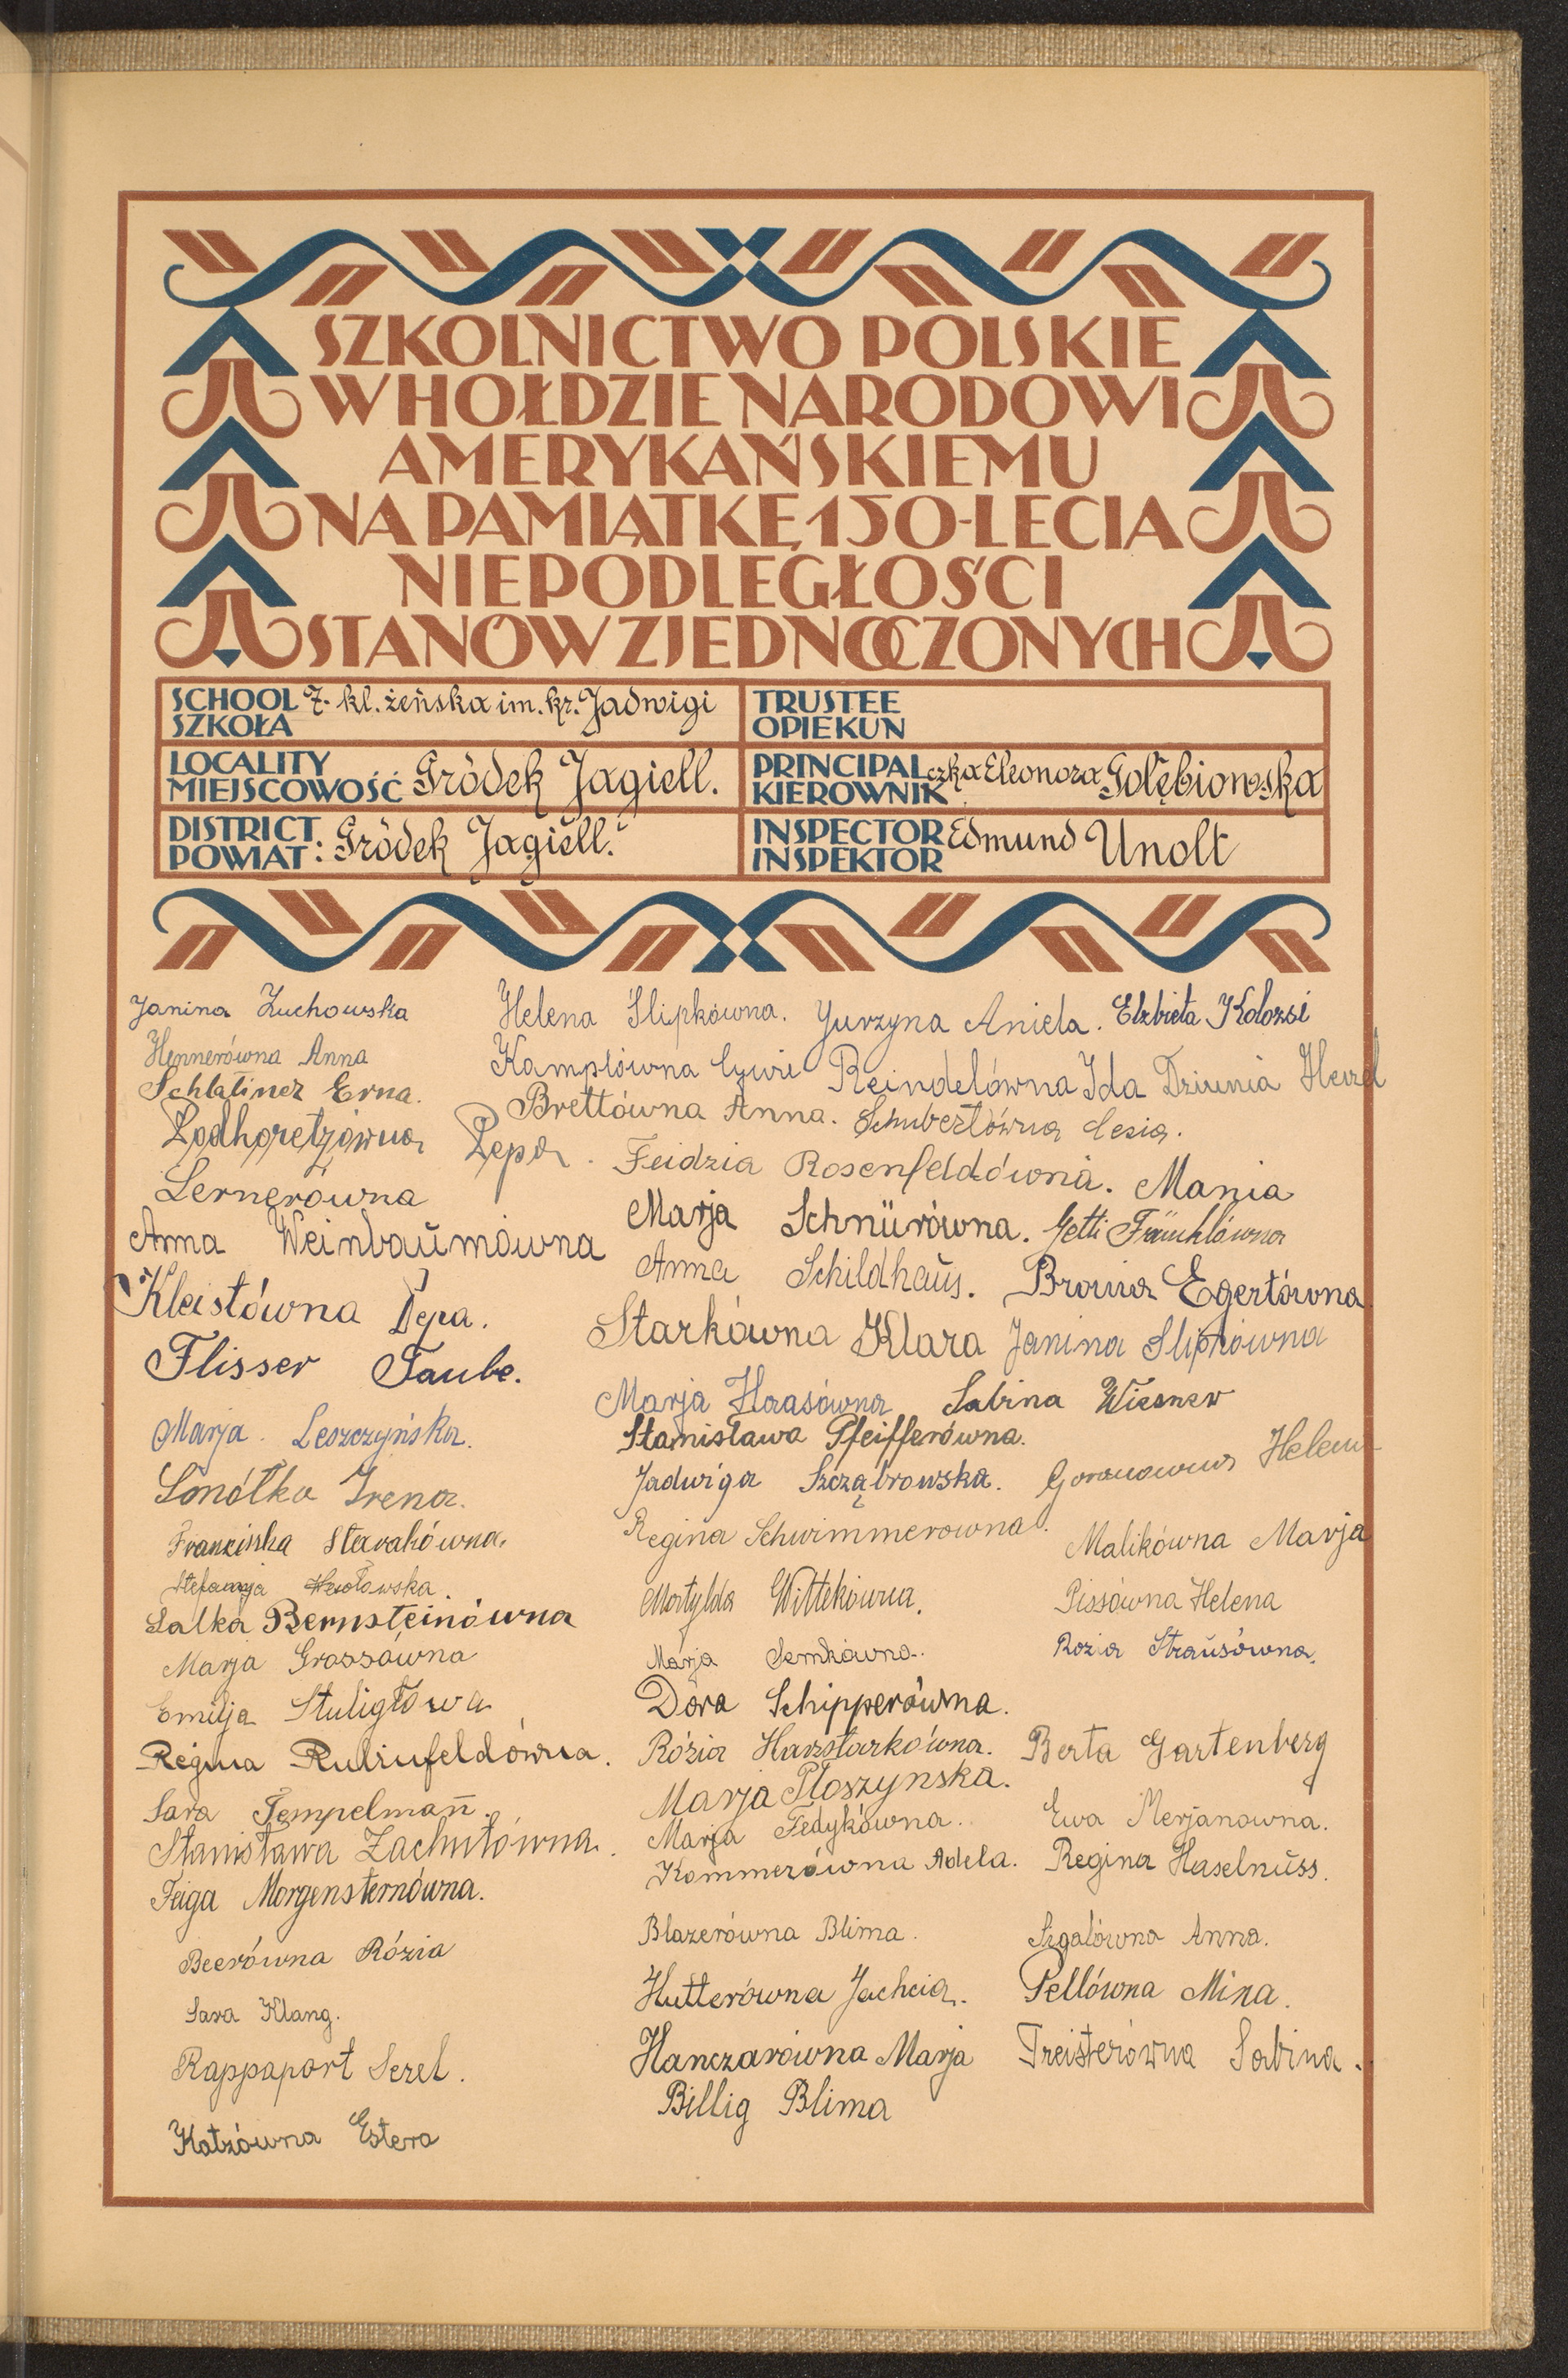 SZKOLNICTWO POLSKIE
W HOŁDZIE NARODOWI
AMERYKAŃSKIEMU
NA PAMIĄTKĘ 150-LECIA
NIEPODLEGŁOŚCI
STANÓW ZJEDNOCZONYCH
SCHOOL SZKOŁA 7. kl. żeńska im. kr. Jadwigi
TRUSTEE OPIEKUN
LOCALITY MIEJSCOWOŚĆ Gródek Jagiell.
PRINCIPAL KIEROWNIK czka Eleonora Gołębiowska
DISTRICT POWIAT: Gródek Jagiell.
INSPECTOR INSPEKTOR Edmund Unolt
Janina Żuchowska
Helena Slipkówna. Jurzyna Aniela. Elżbieta Kolozsi
Hennerówna Anna
Kamplówna Cywie Reindelówna Ida Dziunia
Schlatiner Erna.
Brettówna Anna. Schubertówna Cesia.
Podhoretzówna Pepa.
Feidzia Rosenfeldówna. Mania
Lernerówna
Marja Schnürówna. Jetti
Anna Weinbaumówna
Anna Schildhaus. Bronia Egertówna
Kleistówna Depa.
Starkówna Klara Janina Slipkówna
Flisser Taube.
Marja Haasówna Sabina Wiesner
Marja Leszczyńska.
Stanisława Pfeifferówna.
Jadwiga Szcząbrowska. Helena
Smółka Irena.
Regina Schwimmerowna. Malikówna Marja
Franciszka Starakówna.
Stefanja
Matylda Wittekówna. Pissówna Helena
Salka Bernsteinówna
Marja Grossówna
Marja Semkówna. Rozia Strausówna.
Emilja Stuligłowa
Dora Schipperówna.
Regina Rubinfeldówna.
Rózia Harzstarkówna. Berta Gartenberg
Marja Płoszynska.
Sara Tempelman.
Marja Fedykówna. Ewa Merjanowna.
Stanisława Zachutówna.
Kommerówna Adela. Regina Haselnuss.
Feiga Morgensternówna.
Blazerówna Blima. Szgalówna Anna.
Beerówna Rózia
Hutterówna Jachcia. Pellówna Mina.
Sara Klang.
Hanczarówna Marja Treisterówna Sabina.
Rappaport Serel.
Billig Blima
Katzówna Estera